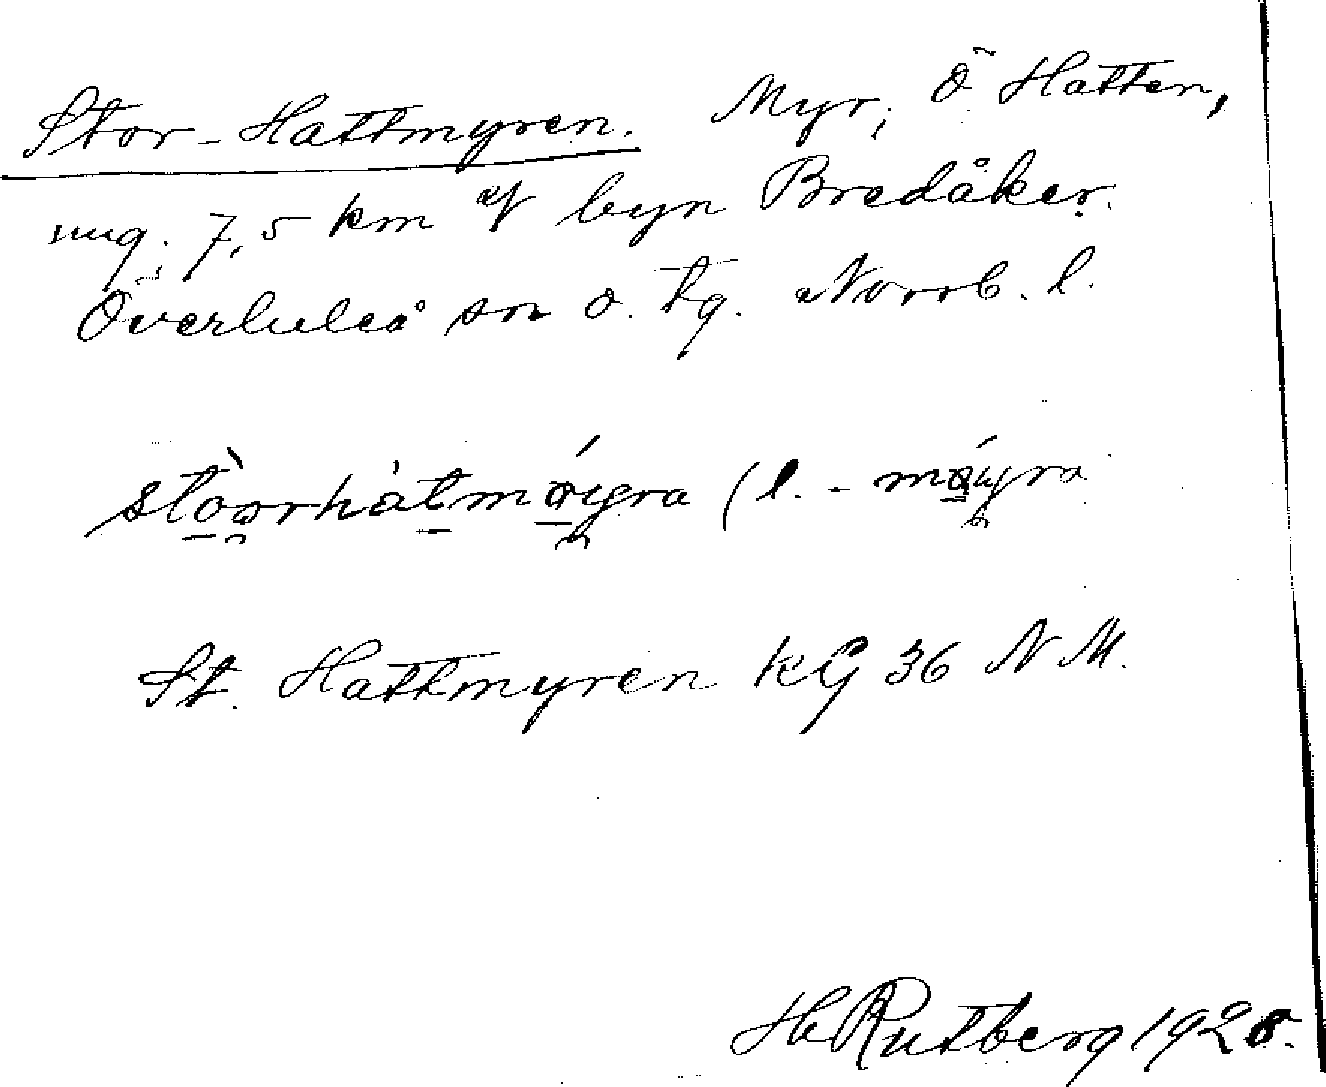 Stor-Hattmyren. Myr, ö Hatten,
ung. 7,5 km av byn Bredåker.
Överluleå sn ö. tg. Norrb. l.
(l. -
St. Hattmyren KG 36 N M.
H Rutberg 1928.